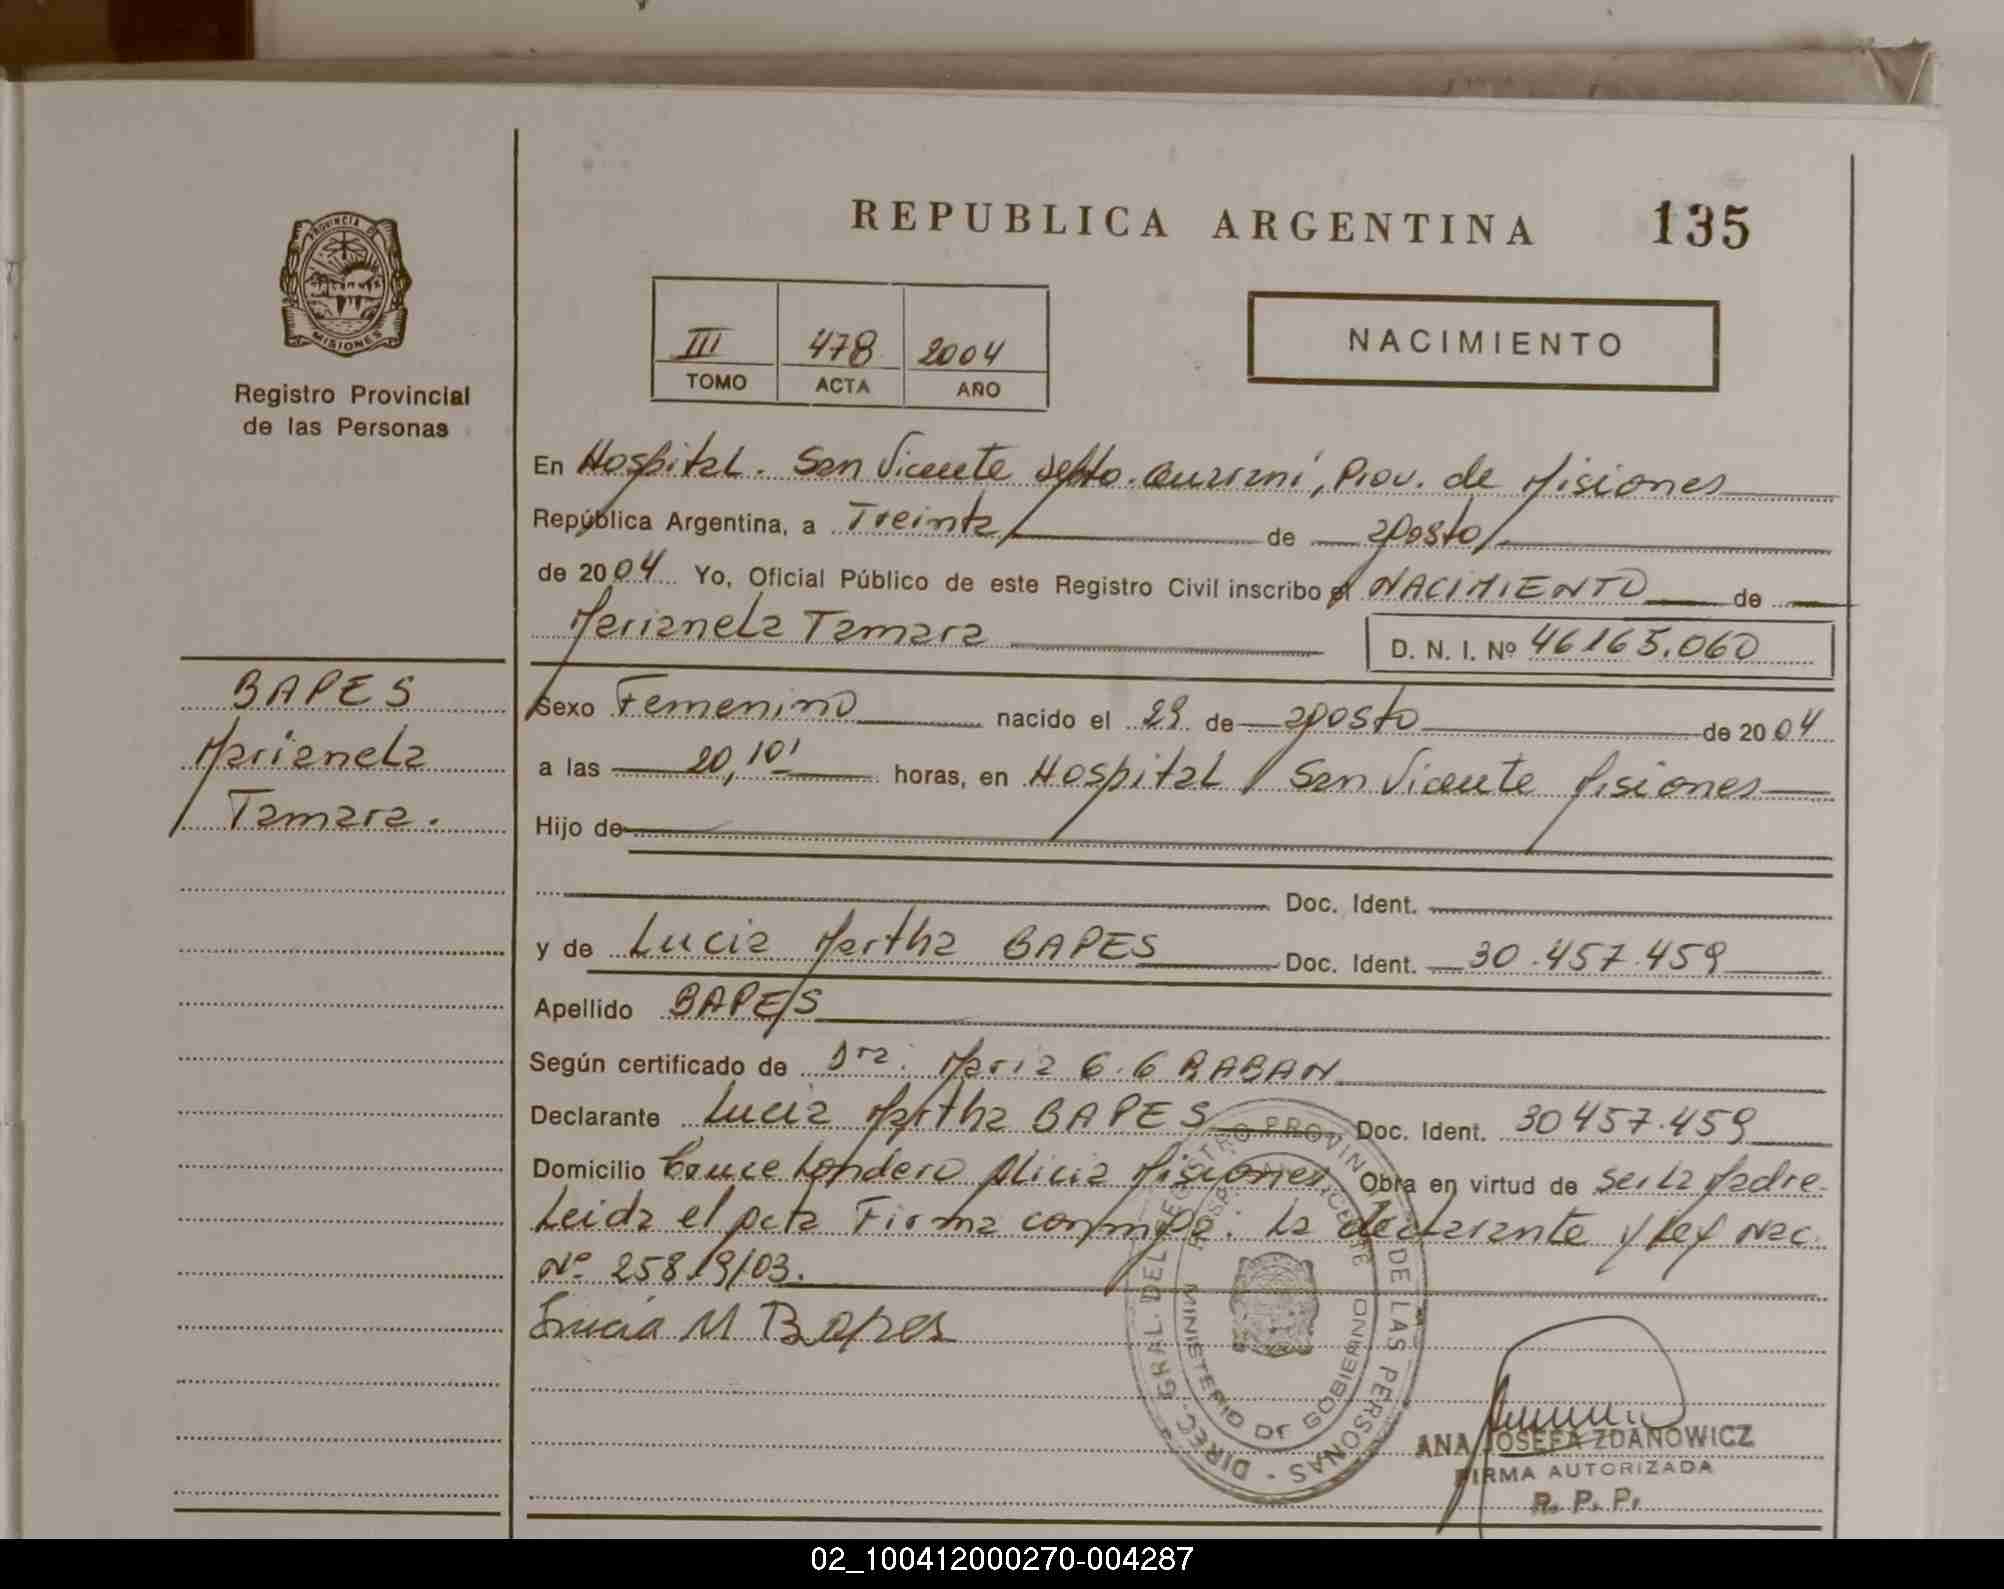 REPUBLICA ARGENTINA 135
PROVINCIA D
MISIONES
Registro Provincial
de las Personas
III 478 2004
TOMO ACTA AÑO
NACIMIENTO
En Hospital. San Vicente Depto. Guarani, Prov. de Misiones
República Argentina, a Treinta de agosto
de 2004 Yo, Oficial Público de este Registro Civil inscribo el NACIMIENTO de
Marianela Tamara D. N. I. Nº 46165.060
BAPES
Marianela
Tamara.
Sexo Femenino nacido el 29 de agosto de 2004
a las 20,10' horas, en Hospital San Vicente Misiones
Hijo de
Doc. Ident.
y de Lucia Martha BAPES Doc. Ident. 30.457.459
Apellido BAPES
Según certificado de Dra. Maria G. GRABAN
Declarante Lucia Martha BAPES Doc. Ident. 30457.459
Domicilio Cruce Londero Alicia Misiones Obra en virtud de ser la Madre
Leida el acta Firma conmigo: La declarante y Ley Nac.
Nº 25819/03.
Lucia M Bapes
DIREC. GRAL. DEL REGISTRO PROVINCIAL DE LAS PERSONAS
MINISTERIO DE GOBIERNO
ANA JOSEFA ZDANOWICZ
FIRMA AUTORIZADA
R. P. P.
02_100412000270-004287